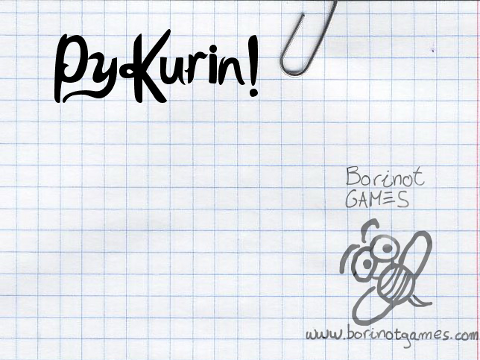 PyKurin!
Borinot
GAMES
www.borinotgames.com